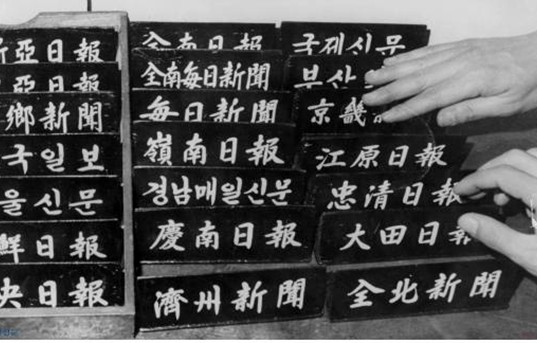 亞日報
亞日報
鄉新聞
국일보
울신문
鮮日報
央日報
全南日報
全南每日新聞
每日新聞
嶺南日報
경남매일신문
慶南日報
濟州新聞
국제신문
부산
京畿
江原日報
忠清日報
大田日報
全北新聞